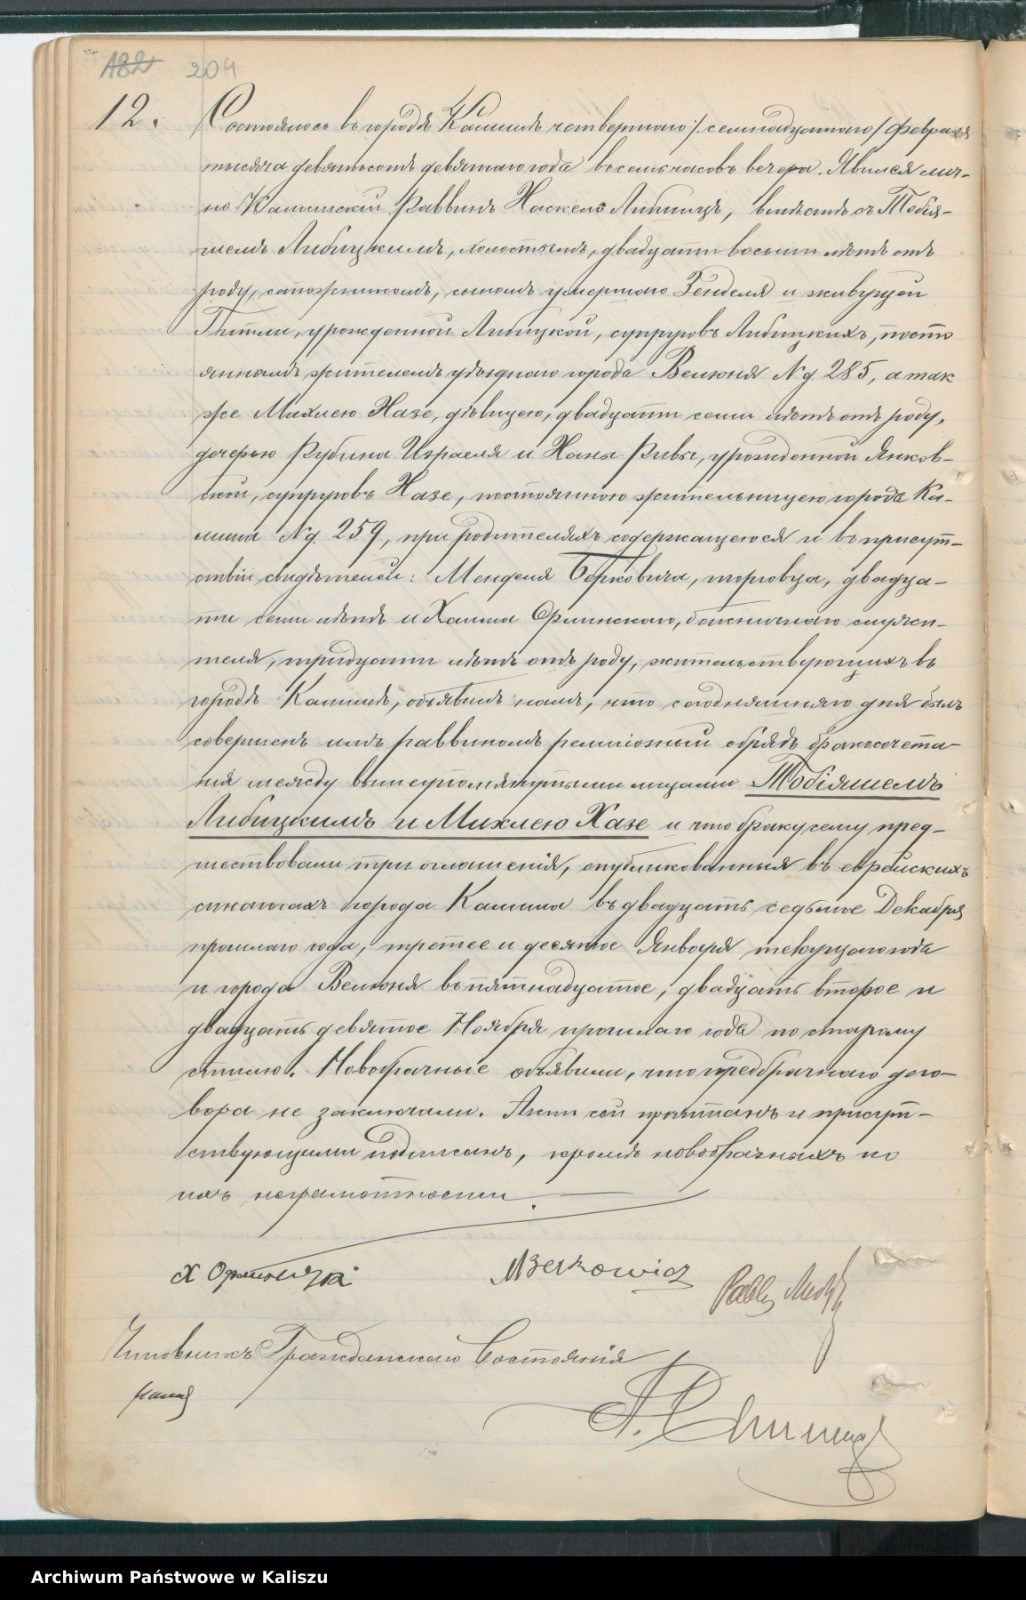 182 204
12. Состоялось въ городѣ Калишѣ четвертаго /семнадцатаго/ Февраля
тысяча девятьсотъ девятаго года въ семь часовъ вечера. Явился лич-
но Калишскій Раввинъ Хаскель Либшицъ, вмѣстѣ съ Тобія-
шемъ Либицкимъ, холостякомъ, двадцати восьми лѣтъ отъ
роду, сапожникомъ, сыномъ умершаго Генделя и живущей
Гитли, урожденной Липицкой, супруговъ Либицкихъ, посто
яннымъ жителемъ уѣзднаго города Велюня № 285, а так
же Михлею Хазе, дѣвицею, двадцати семи лѣтъ отъ роду,
дочерью Рубина Израеля и Ханы Ривы, урожденной Янков-
ской, супруговъ Хазе, постоянною жительницею города Ка-
лиша № 259, при родителяхъ содержащеюся и въ присут-
ствіи свидѣтелей: Менделя Берковича, торговца, двадца-
ти семи лѣтъ и Хаима Орлинскаго, божничнаго служи-
теля, тридцати лѣтъ отъ роду, жительствующихъ въ
городѣ Калишѣ, объявилъ намъ, что сегодняшняго дня былъ
совершенъ имъ раввиномъ религіозный обрядъ бракосочета-
нія между вышеупомянутыми лицами Тобіяшемъ
Либицкимъ и Михлею Хазе и что браку сему пред-
шествовали три оглашенія, опубликованныя въ еврейскихъ
синагогахъ города Калиша въ двадцать седьмое Декабря
прошлаго года, третее и десятое Января текущаго года
и города Велюня въ пятнадцатое, двадцать второе и
двадцать девятое Ноября прошлаго года по старому
стилю. Новобрачные объявили, что предбрачнаго дого-
вора не заключали. Актъ сей прочитанъ и присут-
ствующими подписанъ, кромѣ новобрачныхъ по
ихъ неграмотности.
Х Орлинскій MBerkowicz Раввъ
Чиновникъ Гражданскаго Состоянія